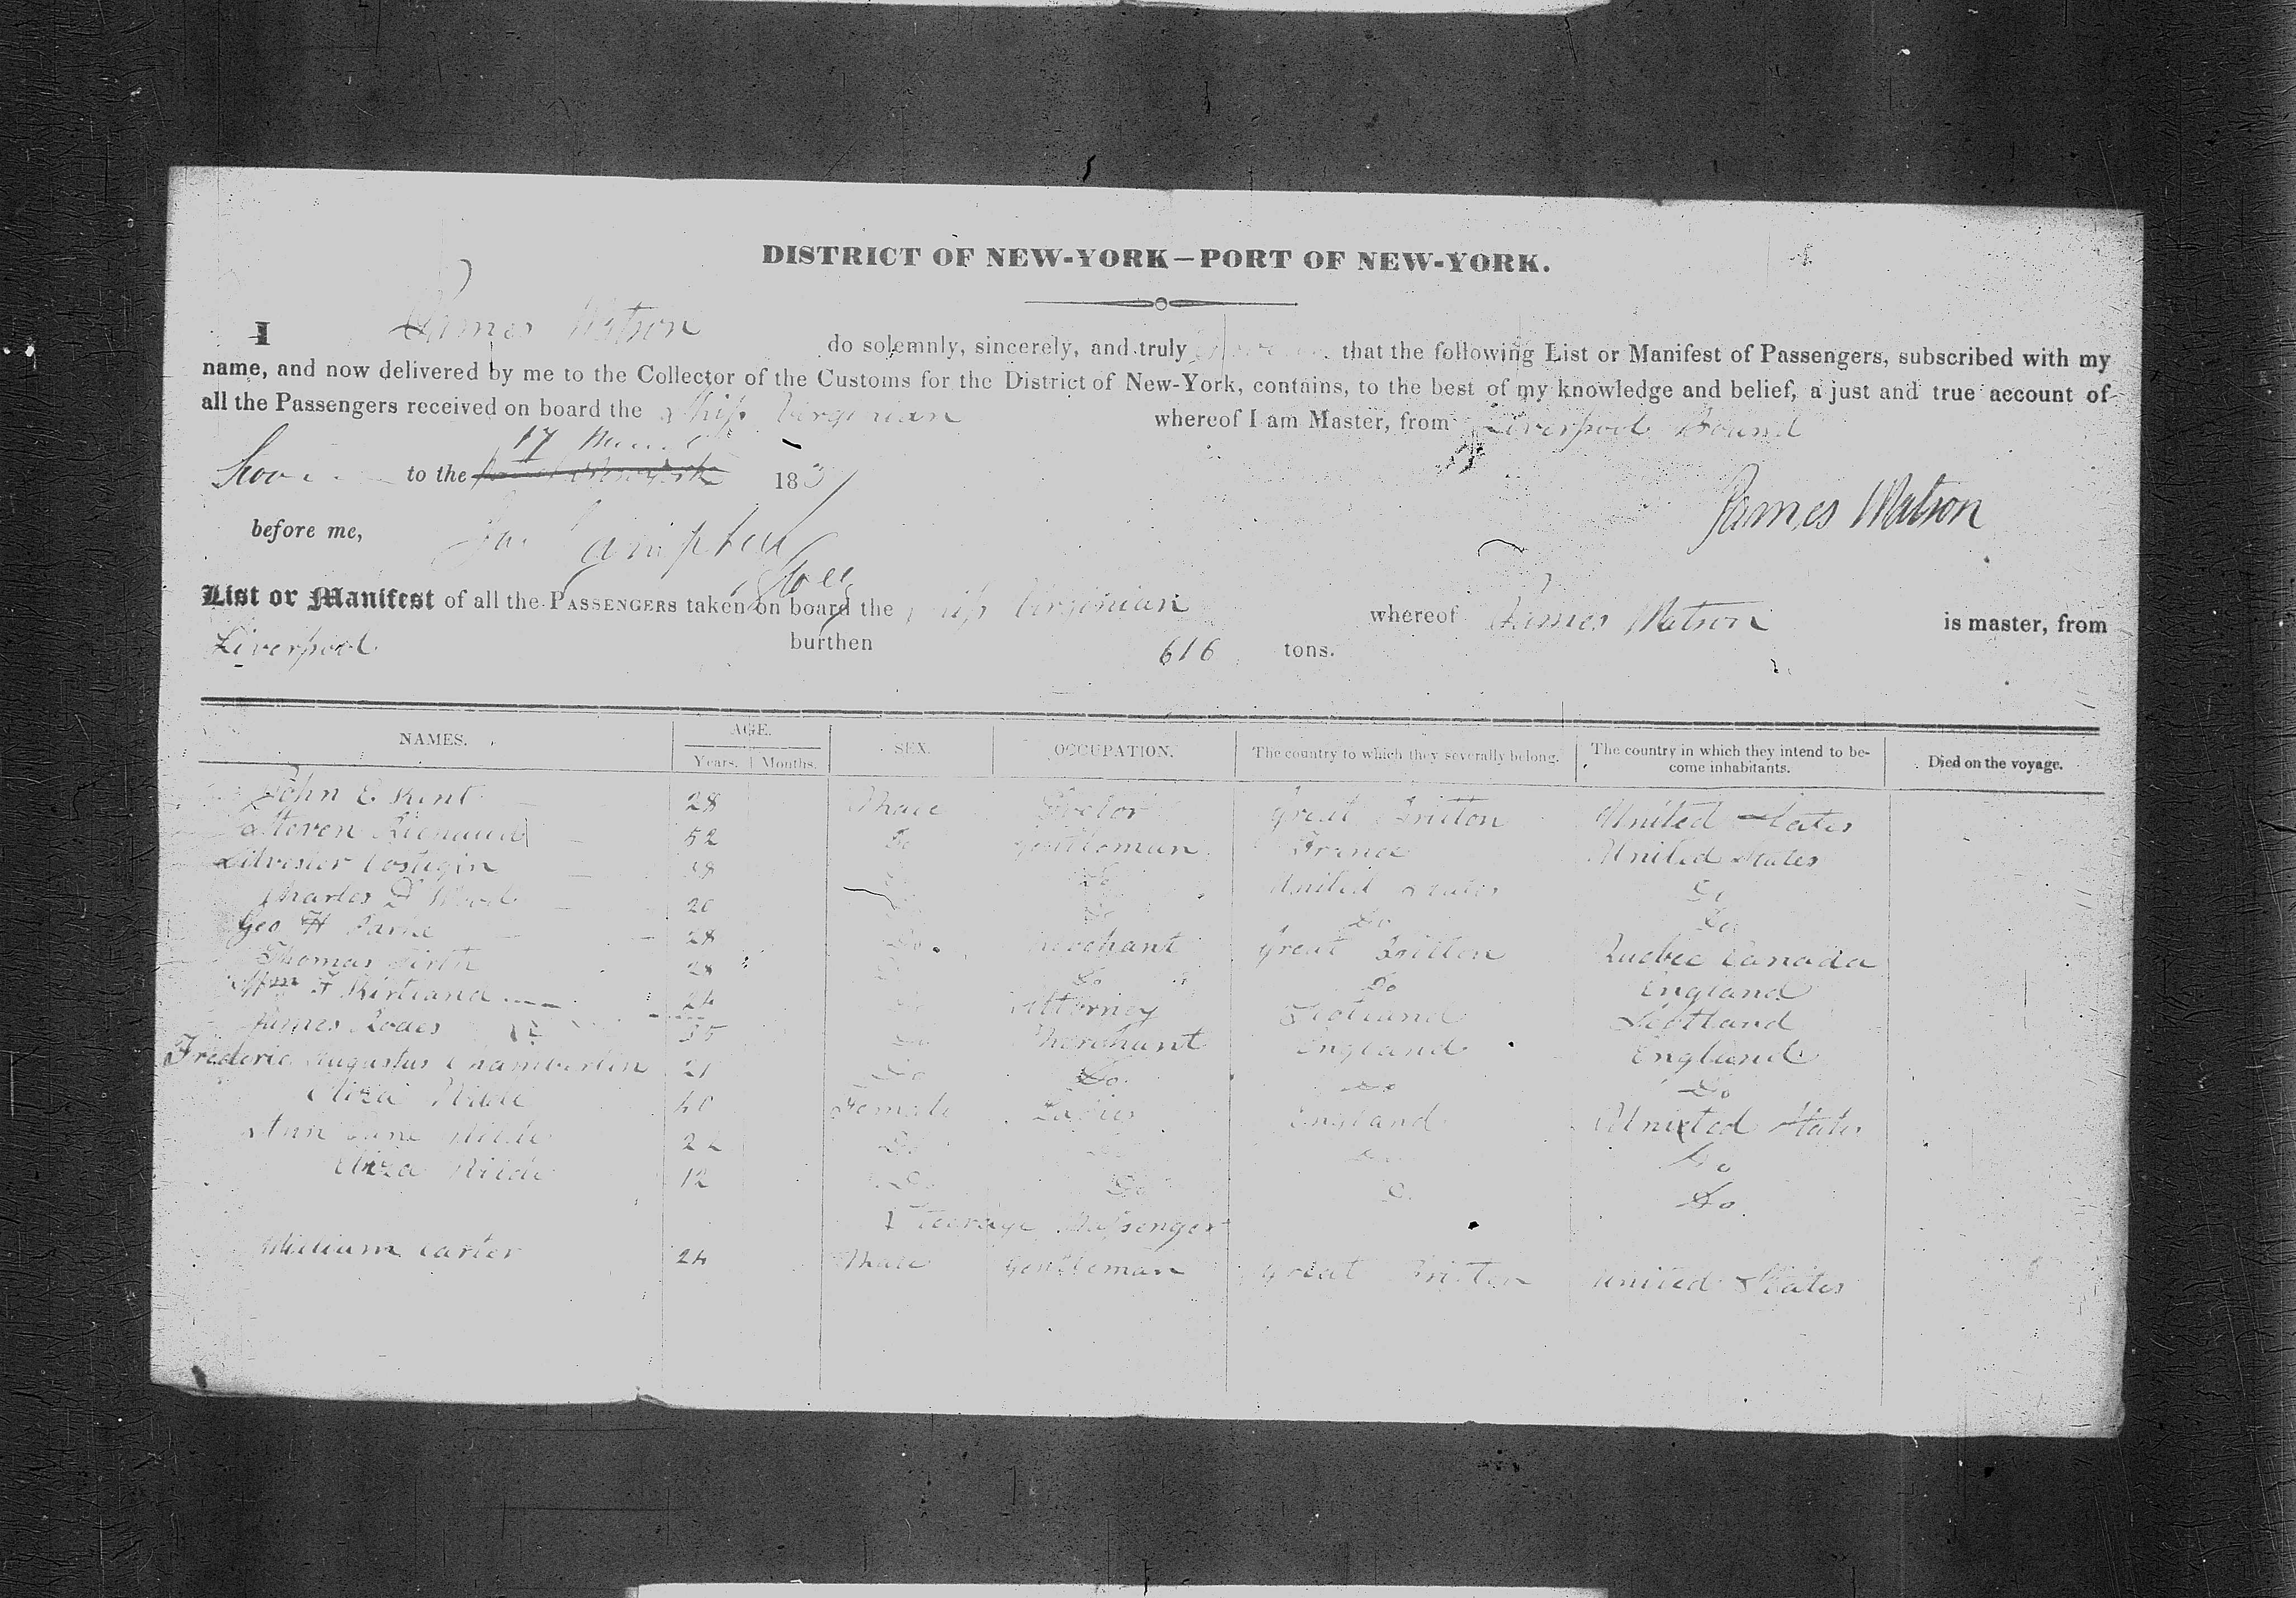 DISTRICT OF NEW-YORK—PORT OF NEW-YORK.
I James Watson do solemnly, sincerely, and truly that the following List or Manifest of Passengers, subscribed with my
name, and now delivered by me to the Collector of the Customs for the District of New-York, contains, to the best of my knowledge and belief, a just and true account of
all the Passengers received on board the Ship Virginian whereof I am Master, from Liverpool Bound
17
to the 183
James Watson
before me, Campbell
List or Manifest of all the PASSENGERS taken on board the Ship Virginian whereof James Watson is master, from
Liverpool burthen 616 tons.
NAMES. AGE. SEX. OCCUPATION. The country to which they severally belong. The country in which they intend to be-
come inhabitants. Died on the voyage.
Years. Months.
John E Kent 28 Male Doctor Great Britton United States
Steven 52 Do Gentleman France United States
Silvester Costigin 38 Do Do United States Do
Charles D Wood 20 Do Do Do Do
Geo H 28 Do Merchant Great Britton Quebec Canada
Thomas Firth 28 Do Do Do England
Wm F Kirtland 24 Do Attorney Scotland Scotland
James Rodes 35 Do Merchant England England
Frederic Augustus Chamberlin 21 Do Do Do Do
Eliza 40 Female Ladies England United States
Ann Jane 22 Do Do Do Do
Eliza 12 Do Do Do Do
Steerage Passenger
William Carter 24 Male Gentleman Great Britten United States